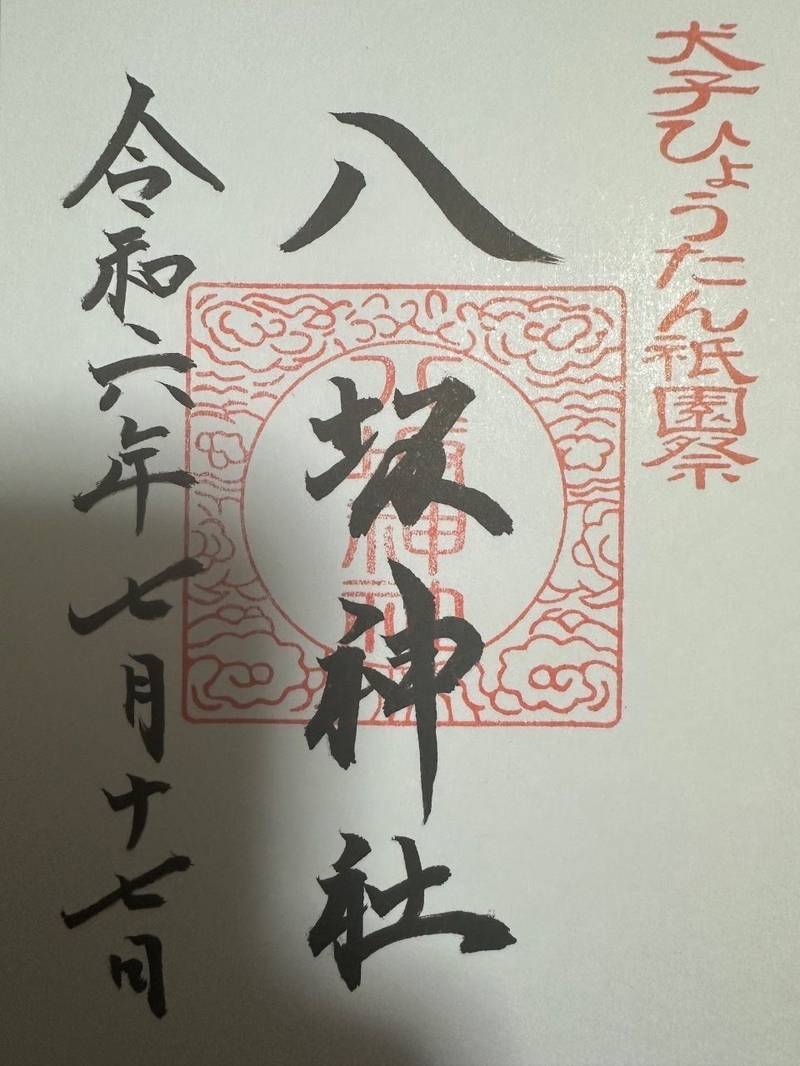 犬子ひょうたん祇園祭
八坂神社
令和六年七月十七日